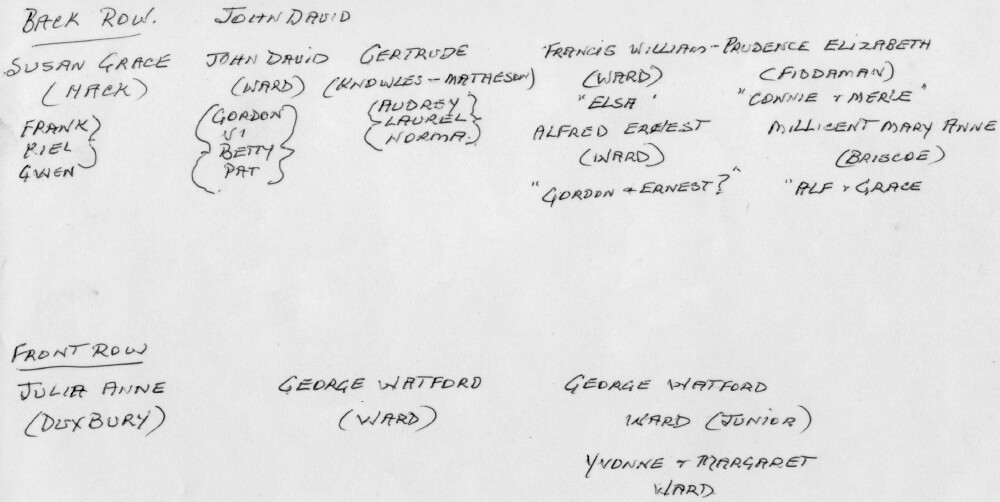 BACK ROW. JOHN DAVID
SUSAN GRACE JOHN DAVID GERTRUDE FRANCIS WILLIAM - PRUDENCE ELIZABETH
(HACK) (WARD) (KNOWLES - MATHESON) (WARD) (FIDDAMAN)
FRANK (GORDON (AUDREY "ELSA" "CONNIE & MERLE"
RIEL VI LAUREL ALFRED ERNEST MILLICENT MARY ANNE
GWEN BETTY NORMA.) (WARD) (BRISCOE)
PAT) "GORDON & ERNEST?" "ALF & GRACE
FRONT ROW
JULIA ANNE GEORGE WATFORD GEORGE WATFORD
(DUXBURY) (WARD) WARD (JUNIOR)
YVONNE & MARGARET
WARD